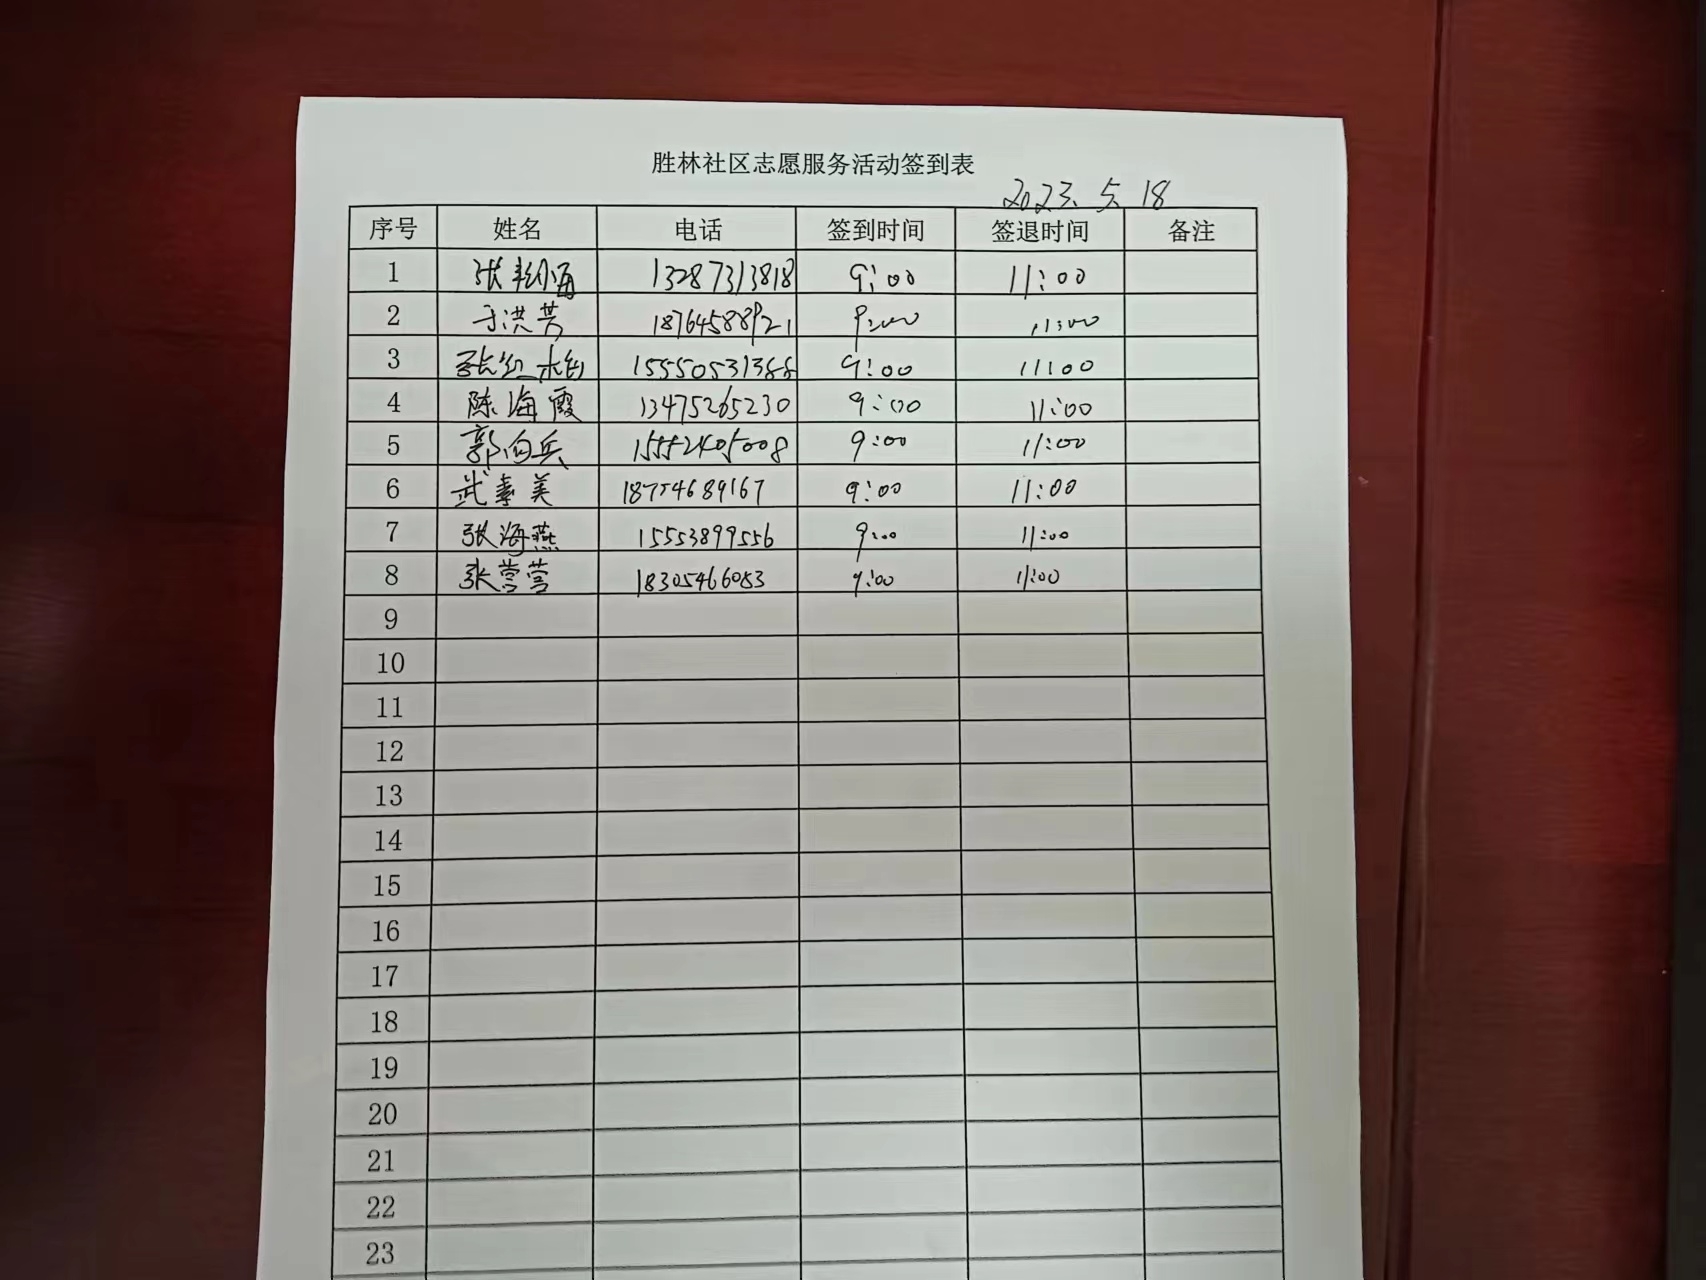 胜林社区志愿服务活动签到表
2023.5.18
序号 姓名 电话 签到时间 签退时间 备注
1 张 13287313818 9:00 11:00
2 于洪芳 18764588921 9:00 11:00
3 张红 15550531388 9:00 11:00
4 陈海霞 13475265230 9:00 11:00
5 郭向兵 15552405008 9:00 11:00
6 武素美 18754689167 9:00 11:00
7 张海燕 15553899556 9:00 11:00
8 张营营 18305466083 9:00 11:00
9
10
11
12
13
14
15
16
17
18
19
20
21
22
23